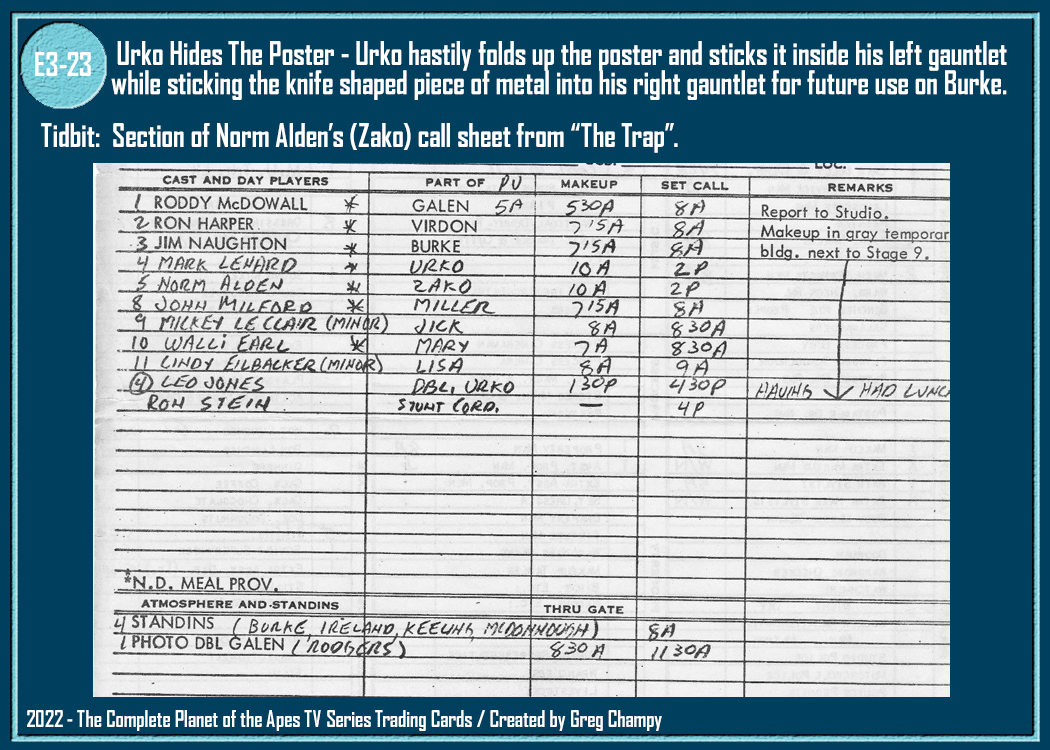 E3-23
Urko Hides The Poster - Urko hastily folds up the poster and sticks it inside his left gauntlet
while sticking the knife shaped piece of metal into his right gauntlet for future use on Burke.
Tidbit: Section of Norm Alden's (Zako) call sheet from "The Trap".
LOC.
CAST AND DAY PLAYERS PART OF PU MAKEUP SET CALL REMARKS
1 RODDY McDOWALL * GALEN 5A 530A 8A Report to Studio.
2 RON HARPER * VIRDON 715A 8A Makeup in gray temporar
3 JIM NAUGHTON * BURKE 715A 8A bldg. next to Stage 9.
4 MARK LENARD * URKO 10A 2P
5 NORM ALDEN * ZAKO 10A 2P
8 JOHN MILFORD * MILLER 715A 8A
9 MICKEY LE CLAIR (MINOR) JICK 8A 830A
10 WALLI EARL * MARY 7A 830A
11 LINDY EILBACKER (MINOR) LISA 8A 9A
(4) LEO JONES DBL. URKO 130P 430P HAVING HAD LUNC
RON STEIN STUNT CORD. — 4P
*N.D. MEAL PROV.
ATMOSPHERE AND STANDINS THRU GATE
4 STANDINS (BURKE, IRELAND, KEELING, McDONNOUGH) 8A
1 PHOTO DBL GALEN (RODGERS) 830A 1130A
2022 - The Complete Planet of the Apes TV Series Trading Cards / Created by Greg Champy